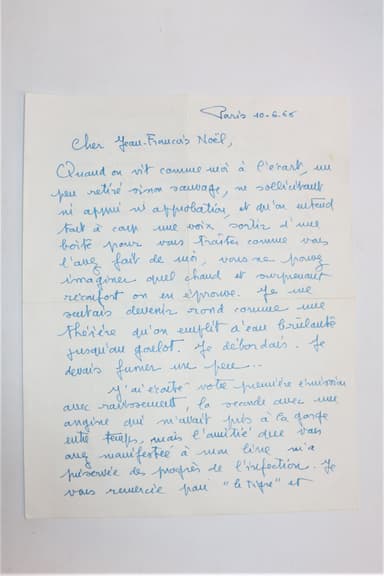 Paris 10.6.65
Cher Jean-Francois Noël,
Quand on vit comme moi à l'écart, un
peu retiré sinon sauvage, ne sollicitant
ni appui ni approbation, et qu'on entend
tout à coup une voix sortir d'une
boîte pour vous traiter comme vous
l'avez fait de moi, vous ne pouvez
imaginer quel chaud et surprenant
réconfort on en éprouve. Je me
sentais devenir rond comme une
théière qu'on emplit d'eau brûlante
jusqu'au goulot. Je débordais. Je
devais fumer un peu..
J'ai écouté votre première émission
avec ravissement, la seconde avec une
angine qui m'avait pris à la gorge
entre temps, mais l'amitié que vous
avez manifestée à mon livre m'a
préservée des progrès de l'infection. Je
vous remercie pour "le tigre" et